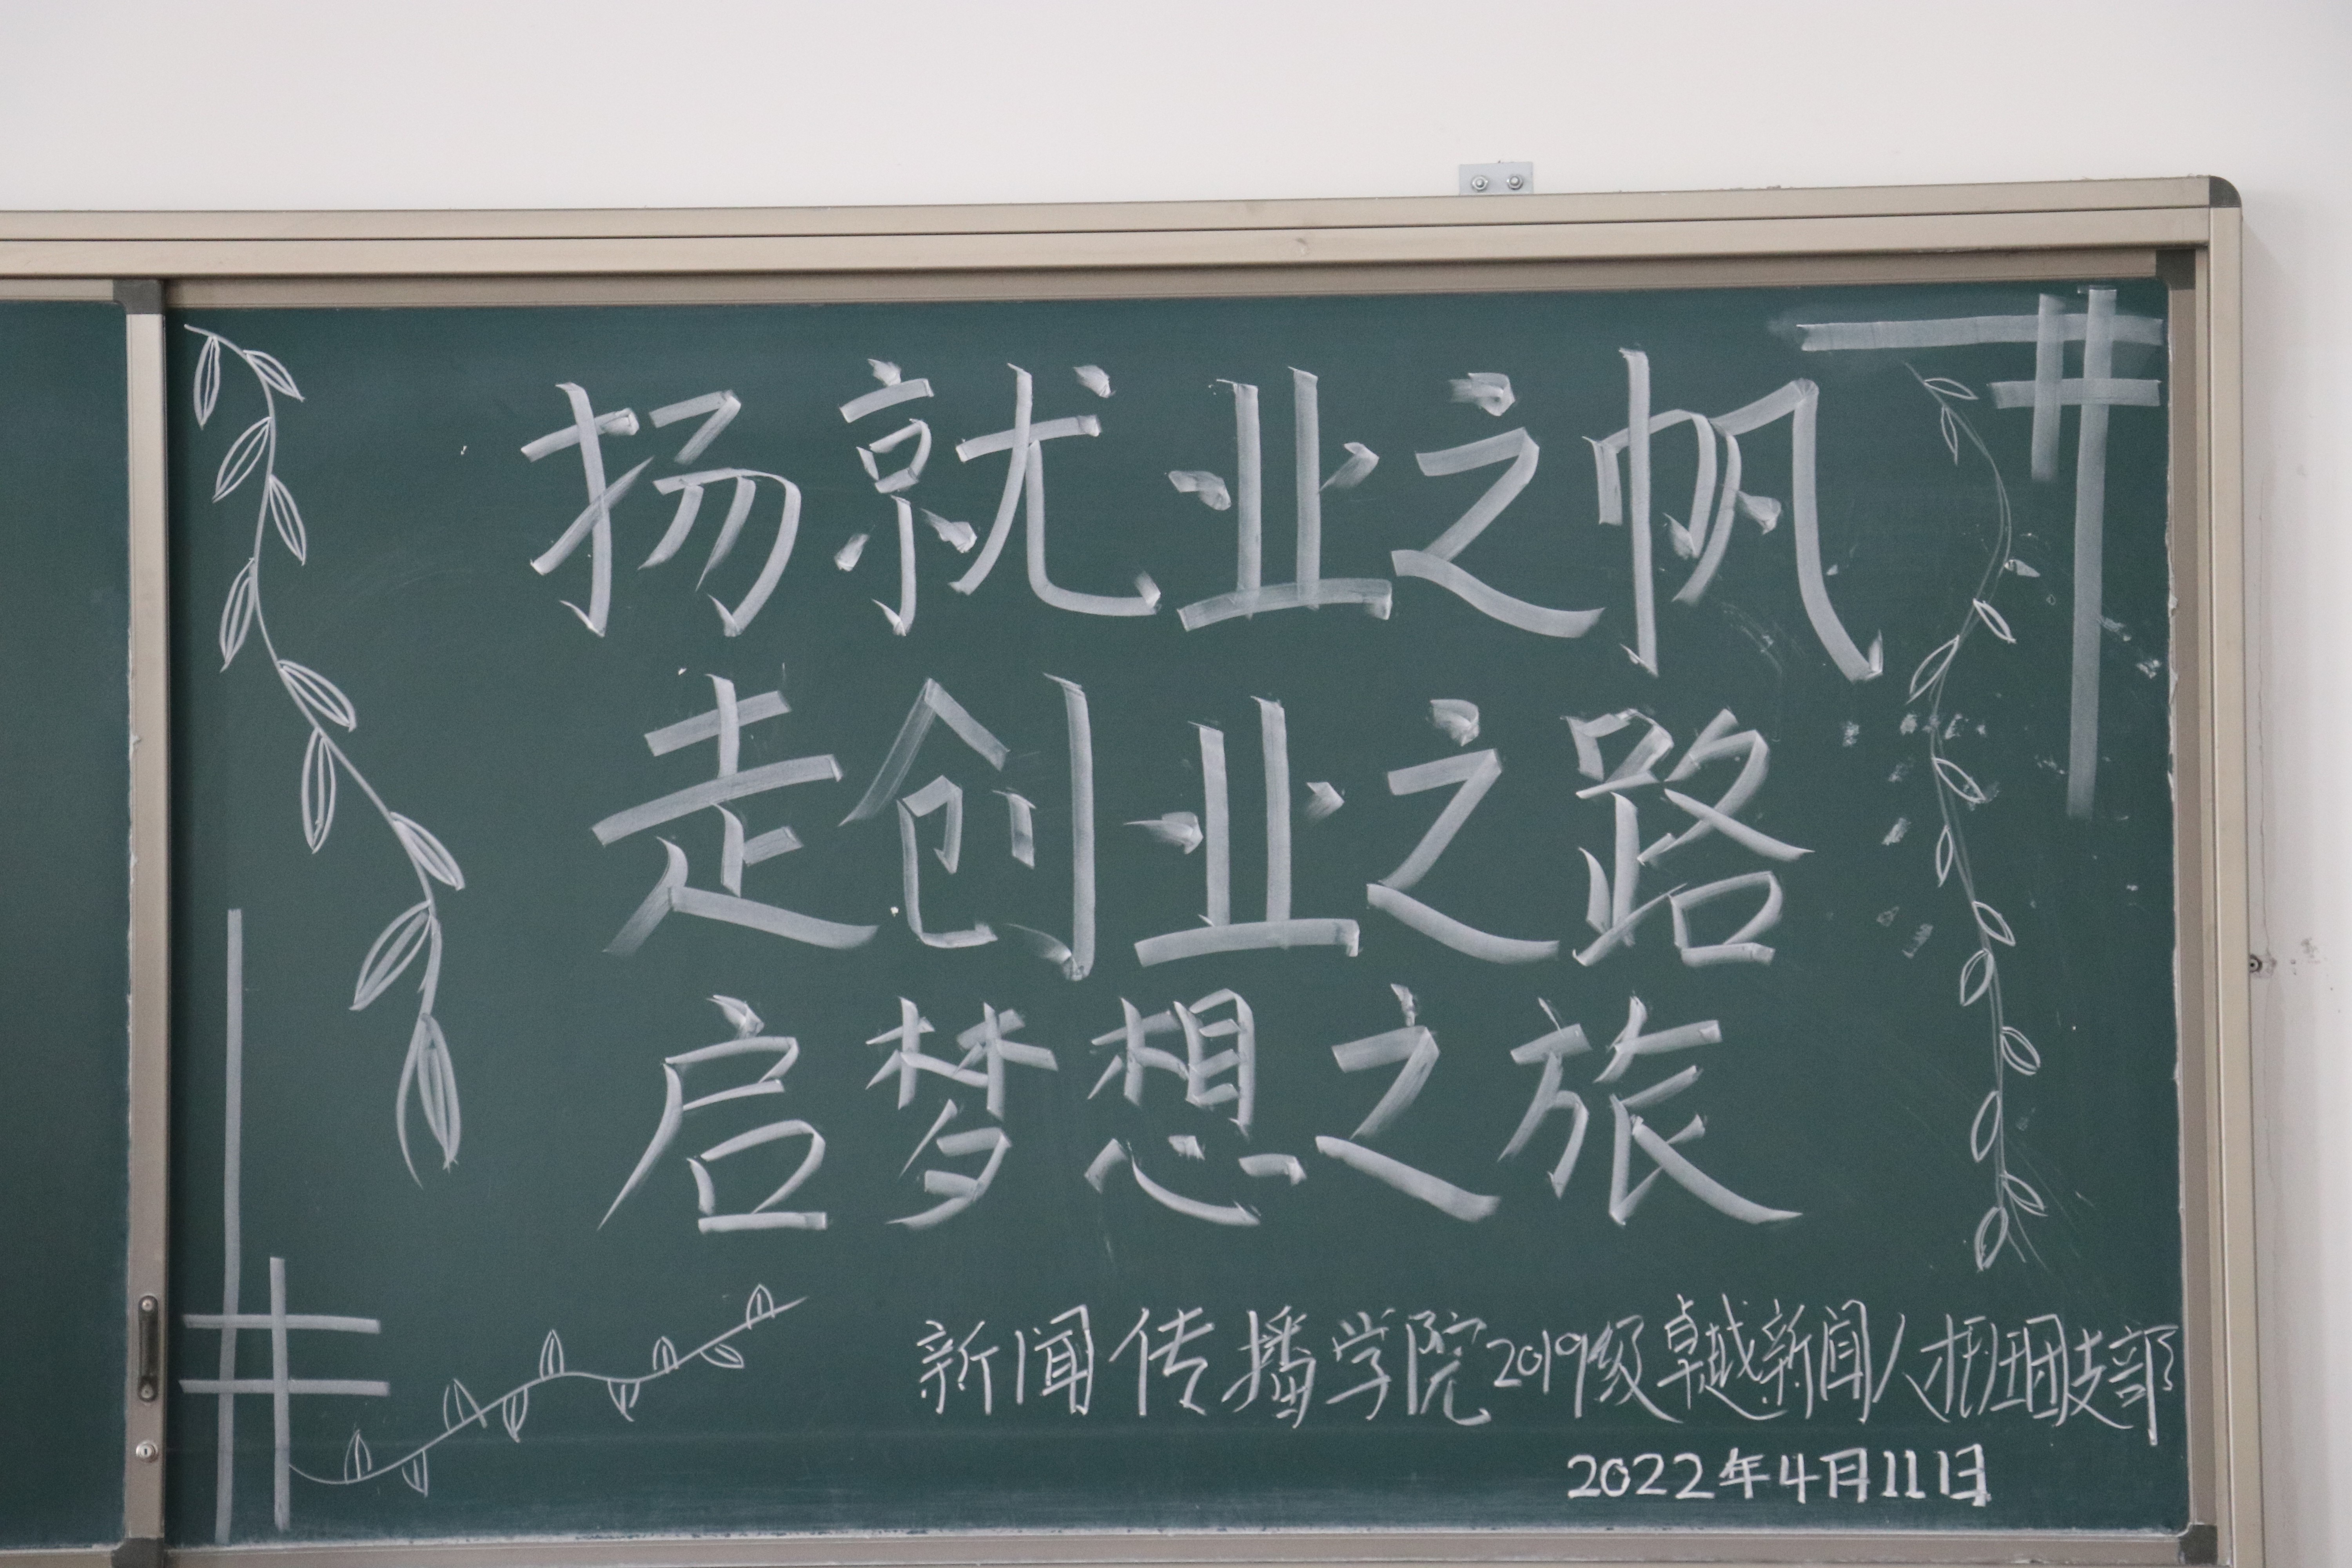 扬就业之帆
走创业之路
启梦想之旅
新闻传播学院2019级卓越新闻人才班团支部
2022年4月11日